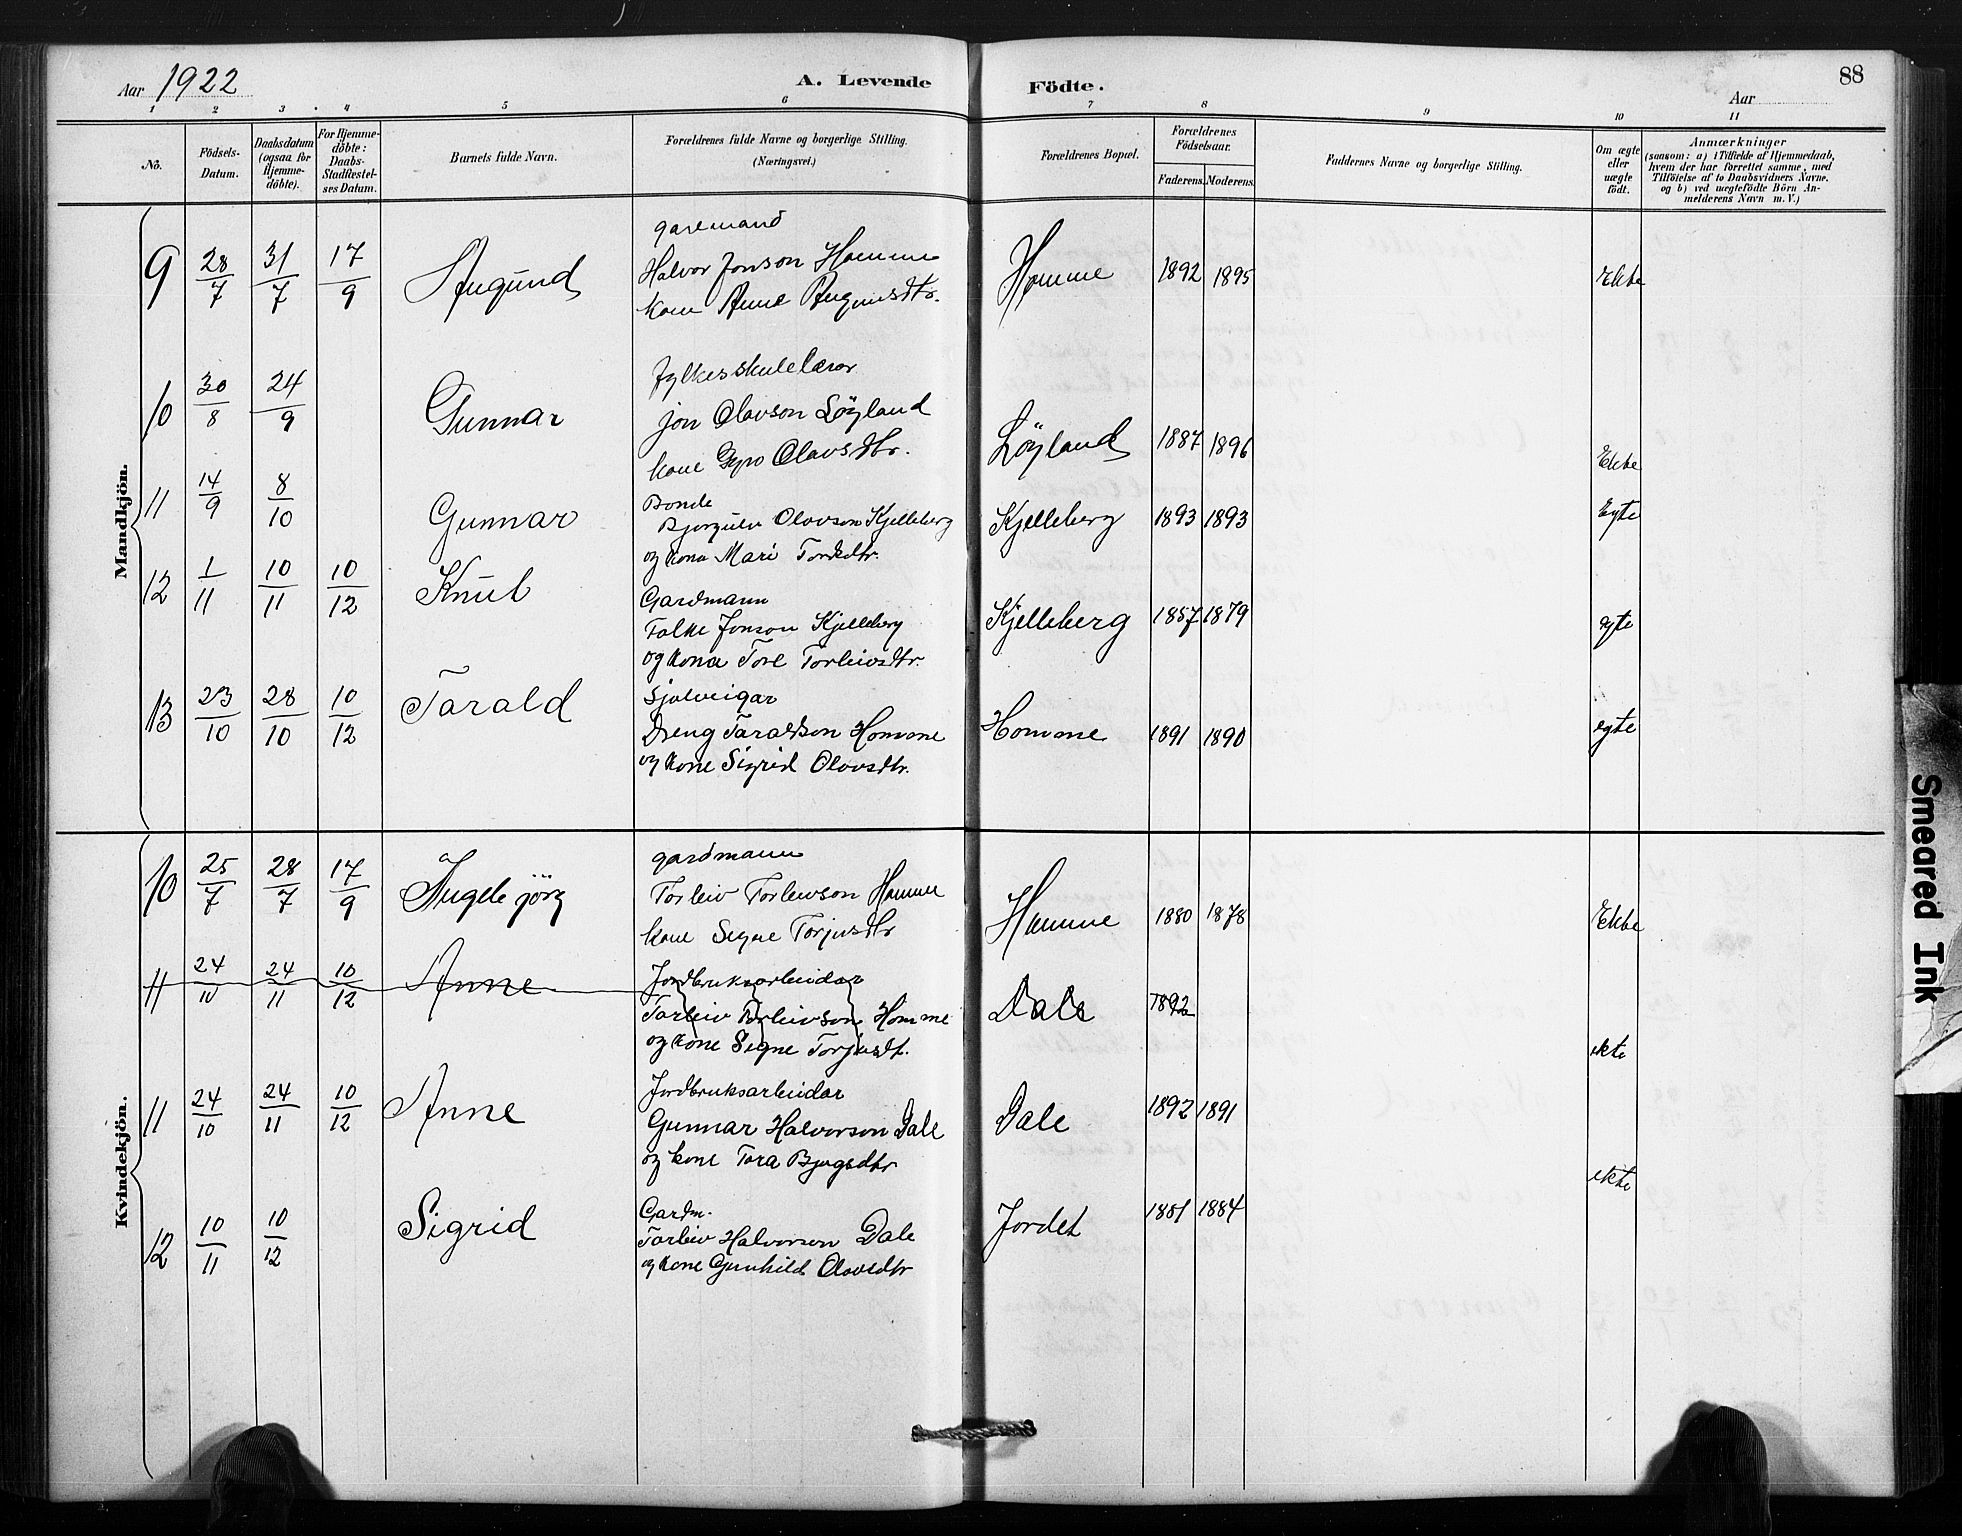 Aar 1922
A. Levende Födte.
88
Aar
1 2 3 4 5 6 7 8 9 10 11
No.
Födsels-Datum.
Daabsdatum (ogsaa for Hjemme-döbte).
For Hjemme-döbte: Daabs-Stadfæstel-ses Datum.
Barnets fulde Navn.
Forældrenes fulde Navne og borgerlige Stilling. (Næringsvei.)
Forældrenes Bopæl.
Forældrenes Födselsaar.
Faderens. Moderens.
Faddernes Navne og borgerlige Stilling.
Om ægte eller uægte födt.
Anmærkninger
(saasom: a) i Tilfælde af Hjemmedaab, hvem der har forrettet samme, med Tilföielse af to Daabsvidners Navne. og b) ved uægtefödte Börn An-melderens Navn m. V.)
Mandkjön.
gardmand
9 28/7 31/7 17/9 Augund Halvor Jonson Homme Homme 1892 1895 Ekte
kone Anne Augunsdtr.
fylkesskulelærar
10 30/8 24/9 Gunnar Jon Olavson Löyland Löyland 1887 1896 Ekte
kone Gyro Olavsdtr.
Bonde
11 14/9 8/10 Gunnar Bjorgulv Olavson Kjelleberg Kjelleberg 1893 1893 Egte
og kona Mari Torksdtr.
12 1/11 10/11 10/12 Knut Gardmann
Folke Jonson Kjelleberg Kjelleberg 1857 1879 egte
og kona Tore Torleivsdtr.
Sjølveigar
13 23/10 28/10 10/12 Tarald Dreng Taraldson Homme Homme 1891 1890 egte
og kone Sigrid Olavsdtr.
Kvindekjön.
gardmann
10 25/7 28/7 17/9 Ingebjörg Torleiv Torleivson Homme Homme 1880 1878 Ekte
kone Signe Torjusdtr
11 24/10 24/11 10/12 Anne Jordbruksarbeidar
Torleiv Torleivson Homme Dale 1892
og kone Signe Torjusdt. ekte
Jordbruksarbeidar
11 24/10 24/11 10/12 Anne Gunnar Halvorson Dale Dale 1892 1891
og kone Tora Bjugsdtr ekte
Gardm.
12 10/11 10/12 Sigrid Torleiv Halvorson Dale Jordet 1881 1884
og kone Gunhild Olavsdtr
Smeared Ink